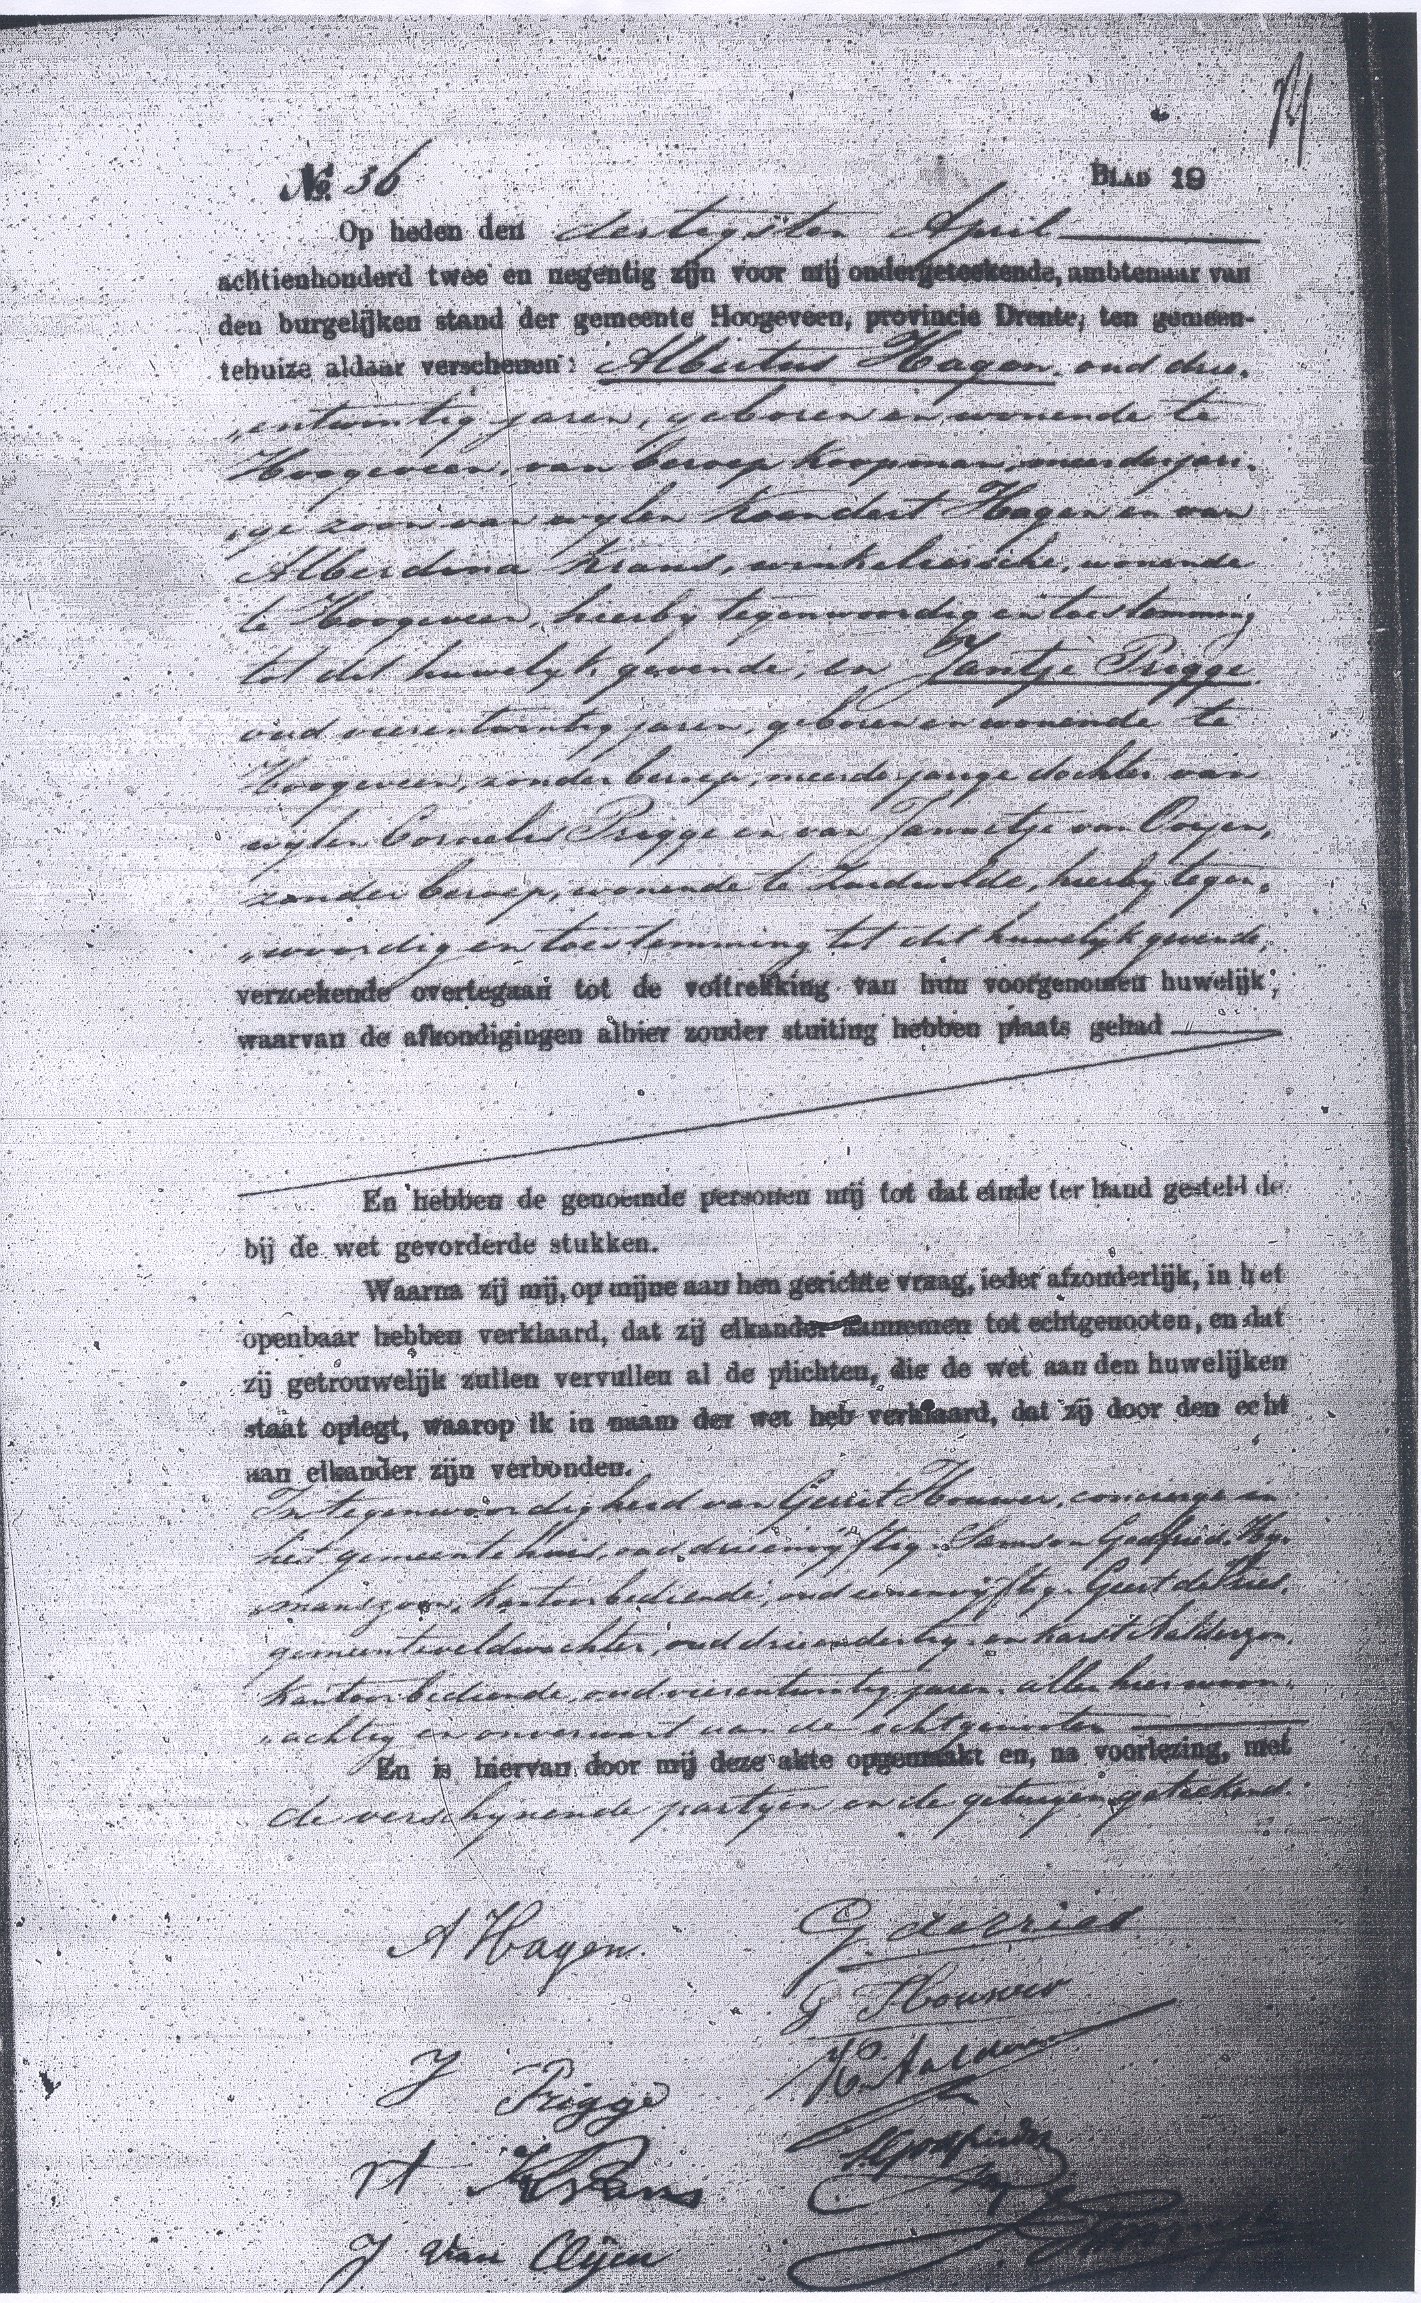 No. 36
BLAD 19
Op heden den dertigsten April
achtienhonderd twee en negentig zijn voor mij ondergeteekende, ambtenaar van
den burgelijken stand der gemeente Hoogeveen, provincie Drente, ten gemeen-
tehuize aldaar verschenen: Albertus Hagen, oud drie-
entwintig jaren, geboren en wonende te
Hoogeveen, van beroep koopman, meerderjari-
ge zoon van wijlen Koendert Hagen en van
Alberdina Krans, winkeliersche, wonende
te Hoogeveen, hierbij tegenwoordig en toestemming
tot dit huwelijk gevende; en Jantje Prigge
oud vierentwintig jaren, geboren en wonende te
Hoogeveen, zonder beroep, meerderjarige dochter van
wijlen Cornelis Prigge en van Jannetje van Ooyen,
zonder beroep, wonende te Zuidwolde, hierbij tegen-
woordig en toestemming tot dit huwelijk gevende
verzoekende overtegaan tot de voltrekking van hun voorgenomen huwelijk,
waarvan de afkondigingen alhier zonder stuiting hebben plaats gehad
En hebben de genoemde personen mij tot dat einde ter hand gesteld de
bij de wet gevorderde stukken.
Waarna zij mij, op mijne aan hen gerichte vraag, ieder afzonderlijk, in het
openbaar hebben verklaard, dat zij elkander aannemen tot echtgenooten, en dat
zij getrouwelijk zullen vervullen al de plichten, die de wet aan den huwelijken
staat oplegt, waarop ik in naam der wet heb verklaard, dat zij door den echt
aan elkander zijn verbonden.
In tegenwoordigheid van Gerrit Bouwer, concierge in
het gemeentehuis, oud drieenvijftig, Samson Godfried Hij-
manszoon, kantoorbediende, oud eenenvijftig, Geert de Vries,
gemeenteveldwachter, oud drieendertig, en Karst Aalderzon,
kantoorbediende, oud vierentwintig jaren, allen hier woon-
achtig en onverwant aan de echtgenooten
En is hiervan door mij deze akte opgemaakt en, na voorlezing, met
de verschijnende partijen en de getuigen geteekend.
A Hagen. G. de Vries
G Bouwer
J Prigge
A Krans
J van Oijen